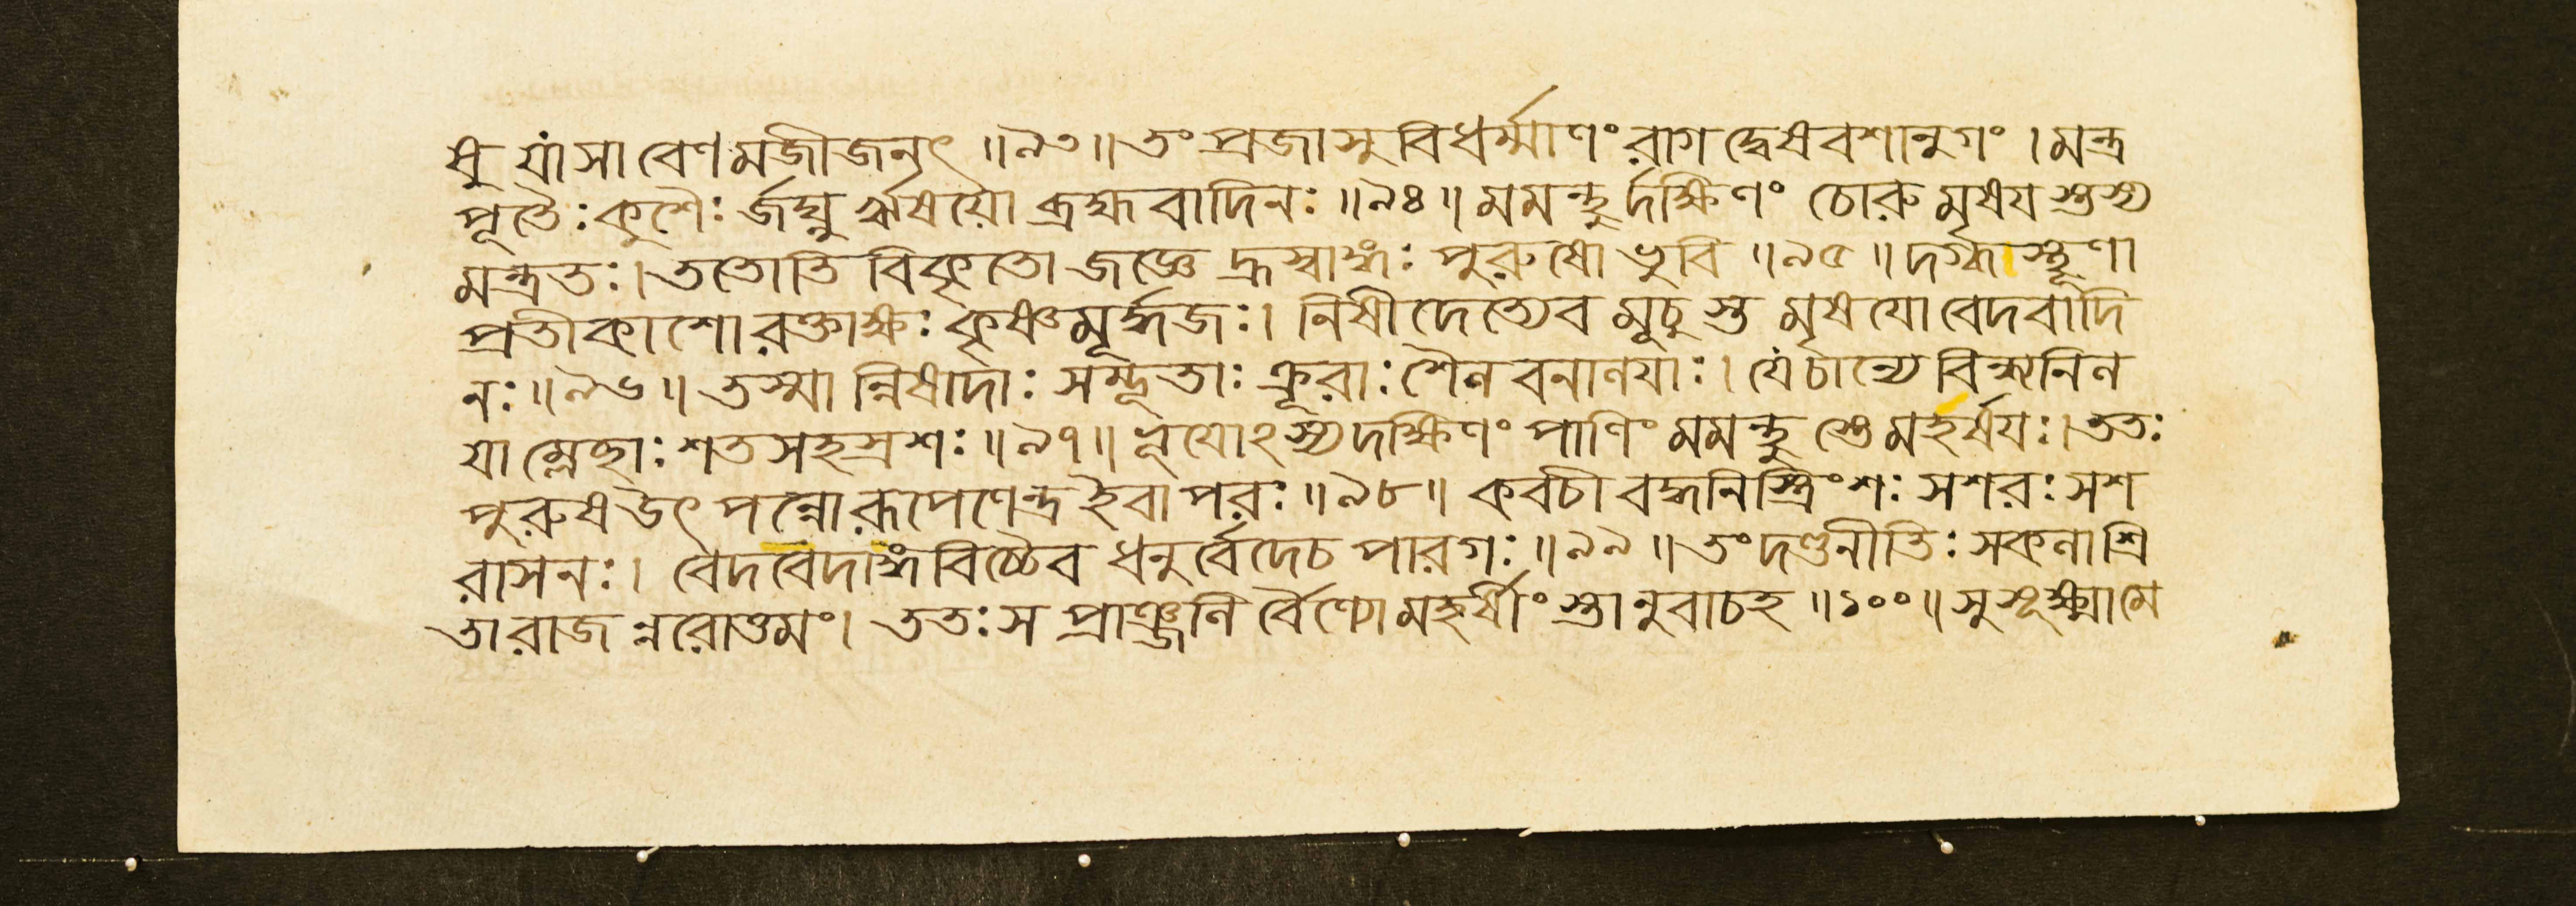 ষু যাং সা বেণমজীজনৎ ॥৯৩॥ তং প্রজাসু বিধর্ম্মাণং রাগদ্বেষবশানুগং । মন্ত্র
পূতৈঃ কুশৈঃ র্জঘ্নু র্ঋষয়ো ব্রহ্মবাদিনঃ ॥৯৪॥ মমন্থুর্দক্ষিণং চোরু মৃষয স্তস্য
মন্ত্রতঃ । ততোতি বিকৃতো জজ্ঞে হ্রস্বাঙ্গঃ পুরুষো ভুবি ॥৯৫॥ দগ্ধাস্থূণা
প্রতীকাশো রক্তাক্ষঃ কৃষ্ণমূর্দ্ধজঃ । নিষীদেত্যেব মূচু স্ত মৃষযো বেদবাদি
নঃ ॥৯৬॥ তস্মা ন্নিষাদাঃ সম্ভূতাঃ ক্রূরাঃ শৈল বনালযাঃ । যে চান্যে বিন্ধ্যনিল
যা ম্লেচ্ছাঃ শতসহস্রশঃ ॥৯৭॥ ভূযোঽস্য দক্ষিণং পাণিং মমন্থু স্তে মহর্ষযঃ । ততঃ
পুরুষ উৎপন্নো রূপেণেন্দ্র ইবাপরঃ ॥৯৮॥ কবচী বদ্ধনিস্ত্রিংশঃ সশরঃ সশ
রাসনঃ । বেদবেদাঙ্গবিচ্চৈব ধনুর্বেদেচ পারগঃ ॥৯৯॥ তং দণ্ডনীতিঃ সকলা শ্রি
তা রাজ ন্নরোত্তমং । ততঃ স প্রাঞ্জলি র্বৈণ্যো মহর্ষীং স্তানুবাচহ ॥১০০॥ সুসূক্ষ্মা মে